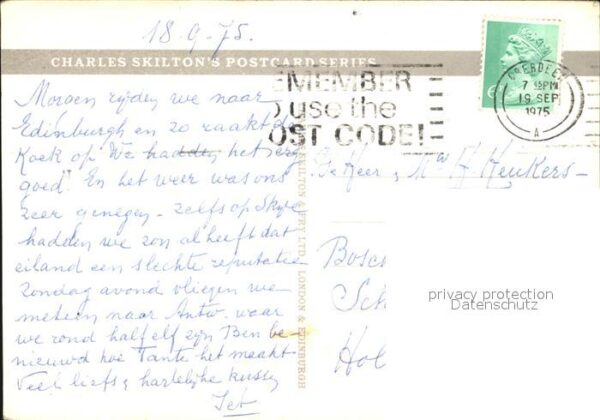 18.9.75.
CHARLES SKILTON'S POSTCARD SERIES
Morgen rijden we naar
Edinburgh en zo raakt de
Koek op. We hadden het erg
goed! En het weer was ons
zeer genegen - zelfs op Skye
hadden we zon al heeft dat
eiland een slechte reputatie
Zondag avond vliegen we
meteen naar Antw. waar
we rond half elf zijn Ben be-
nieuwd hoe Tante het maakt
Veel liefs, hartelijke kussen
Jet
EMEMBER
o use the
OST CODE!
ABERDEEN
7 PM
19 SEP
1975
A
SKILTON & FRY LTD. LONDON & EDINBURGH
De Heer & Mw Heukers-
Bosc
Sch
Hol
privacy protection
Datenschutz